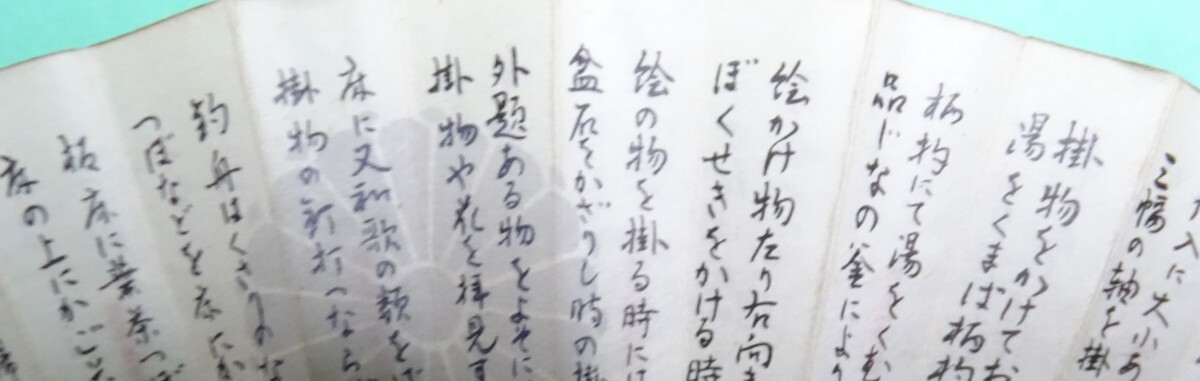 入に大小あ
三幅の軸を掛
掛物をかけてお
湯をくまば柄杓
柄杓にて湯をくむ
品じなの釜により
絵かけ物左り右向き
ぼくせきをかける時
絵の物を掛る時には
盆石をかざりし時の掛
外題ある物をよそに
掛物や花を拝見す
床に又和歌の類をば
掛物の釘打つなら
釣舟はくさりのな
つぼなどを床にか
床に葉茶つぼ
床の上にかご